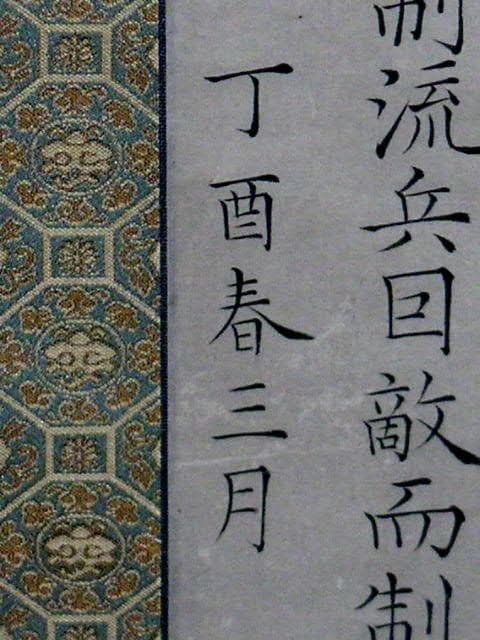 制流兵囙敵而制
丁酉春三月